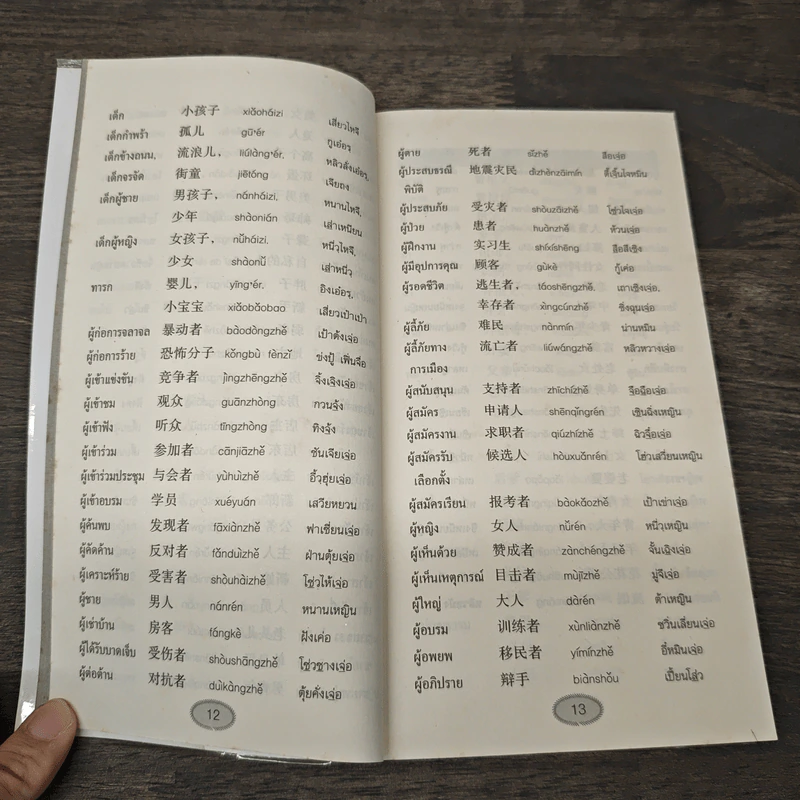 เด็ก 小孩子 xiǎoháizi เสี่ยวไหจึ
เด็กกำพร้า 孤儿 gū'ér กูเอ๋อร
เด็กข้างถนน, 流浪儿, liúlàng'ér, หลิวลั่งเอ๋อร,
เด็กจรจัด 街童 jiētóng เจียถง
เด็กผู้ชาย 男孩子, nánháizi, หนานไหจึ,
少年 shàonián เส่าเหนียน
เด็กผู้หญิง 女孩子, nǚháizi, หนี่ว์ไหจึ,
少女 shàonǚ เส่าหนี่ว์
ทารก 婴儿, yīng'ér, อิงเอ๋อร,
小宝宝 xiǎobǎobao เสี่ยวเป่าเปา
ผู้ก่อการจลาจล 暴动者 bàodòngzhě เป้าต้งเจ่อ
ผู้ก่อการร้าย 恐怖分子 kǒngbù fènzǐ ข่งปู้ เฟิ่นจื่อ
ผู้เข้าแข่งขัน 竞争者 jìngzhēngzhě จิ้งเจิงเจ่อ
ผู้เข้าชม 观众 guānzhòng กวนจ้ง
ผู้เข้าฟัง 听众 tīngzhòng ทิงจ้ง
ผู้เข้าร่วม 参加者 cānjiāzhě ชันเจียเจ่อ
ผู้เข้าร่วมประชุม 与会者 yùhuìzhě อี้ว์ฮุ่ยเจ่อ
ผู้เข้าอบรม 学员 xuéyuán เสวียหยวน
ผู้ค้นพบ 发现者 fāxiànzhě ฟาเซี่ยนเจ่อ
ผู้คัดค้าน 反对者 fǎnduìzhě ฝ่านตุ้ยเจ่อ
ผู้เคราะห์ร้าย 受害者 shòuhàizhě โซ่วไห้เจ่อ
ผู้ชาย 男人 nánrén หนานเหญิน
ผู้เช่าบ้าน 房客 fángkè ฝังเค่อ
ผู้ได้รับบาดเจ็บ 受伤者 shòushāngzhě โซ่วชางเจ่อ
ผู้ต่อต้าน 对抗者 duìkàngzhě ตุ้ยคั่งเจ่อ
12
ผู้ตาย 死者 sǐzhě สือเจ่อ
ผู้ประสบธรณี 地震灾民 dìzhènzāimín ตี้เจิ้นไจหมิน
พิบัติ
ผู้ประสบภัย 受灾者 shòuzāizhě โซ่วไจเจ่อ
ผู้ป่วย 患者 huànzhě ห้วนเจ่อ
ผู้ฝึกงาน 实习生 shíxíshēng สือสีเซิง
ผู้มีอุปการคุณ 顾客 gùkè กู้เค่อ
ผู้รอดชีวิต 逃生者, táoshēngzhě, เถาเซิงเจ่อ,
幸存者 xìngcúnzhě ซิ่งฉุนเจ่อ
ผู้ลี้ภัย 难民 nànmín น่านหมิน
ผู้ลี้ภัยทาง 流亡者 liúwángzhě หลิวหวางเจ่อ
การเมือง
ผู้สนับสนุน 支持者 zhīchízhě จือฉือเจ่อ
ผู้สมัคร 申请人 shēnqǐngrén เซินฉิ่งเหญิน
ผู้สมัครงาน 求职者 qiúzhízhě ฉิวจื๋อเจ่อ
ผู้สมัครรับ 候选人 hòuxuǎnrén โฮ่วเสวี่ยนเหญิน
เลือกตั้ง
ผู้สมัครเรียน 报考者 bàokǎozhě เป้าเข่าเจ่อ
ผู้หญิง 女人 nǚrén หนี่ว์เหญิน
ผู้เห็นด้วย 赞成者 zànchéngzhě จั้นเฉิงเจ่อ
ผู้เห็นเหตุการณ์ 目击者 mùjīzhě มู่จีเจ่อ
ผู้ใหญ่ 大人 dàrén ต้าเหญิน
ผู้อบรม 训练者 xùnliànzhě ซวิ่นเลี่ยนเจ่อ
ผู้อพยพ 移民者 yímínzhě อี๋หมินเจ่อ
ผู้อภิปราย 辩手 biànshǒu เปี้ยนโส่ว
13